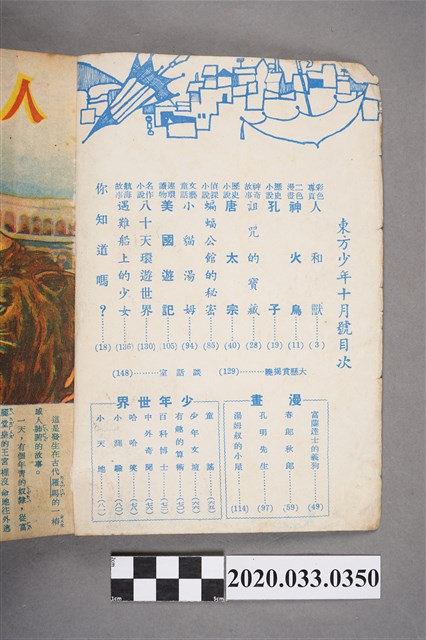 東方少年十月號目次
彩色專頁 人和獸 (3)
二色漫畫 神火鳥 (11)
歷史小說 孔子 (19)
神奇故事 詛咒的寶藏 (28)
歷史小說 唐太宗 (40)
偵探小說 蝙蝠公館的秘密 (85)
文藝童話 小貓湯姆 (94)
連環讀物 美國遊記 (105)
名作小說 八十天環遊世界 (130)
航海故事 遇難船上的少女 (136)
你知道嗎? (18)
大懸賞揭曉 (129)
談話室 (148)
漫畫
富蘭達士的義狗 (49)
春郎秋郎 (59)
孔明先生 (97)
湯姆叔的小屋 (114)
少年世界
童謠
少年文選
有趣的算術
百科博士
中外奇聞
哈哈笑
小測驗
小天地 (一)
人
這是發生在古代羅馬的一椿
感人肺腑的故事。
一天,有個年青的奴隸,從富
麗堂皇的王宮裡沒命地往外逃
1cm
2cm
5cm
2020.033.0350